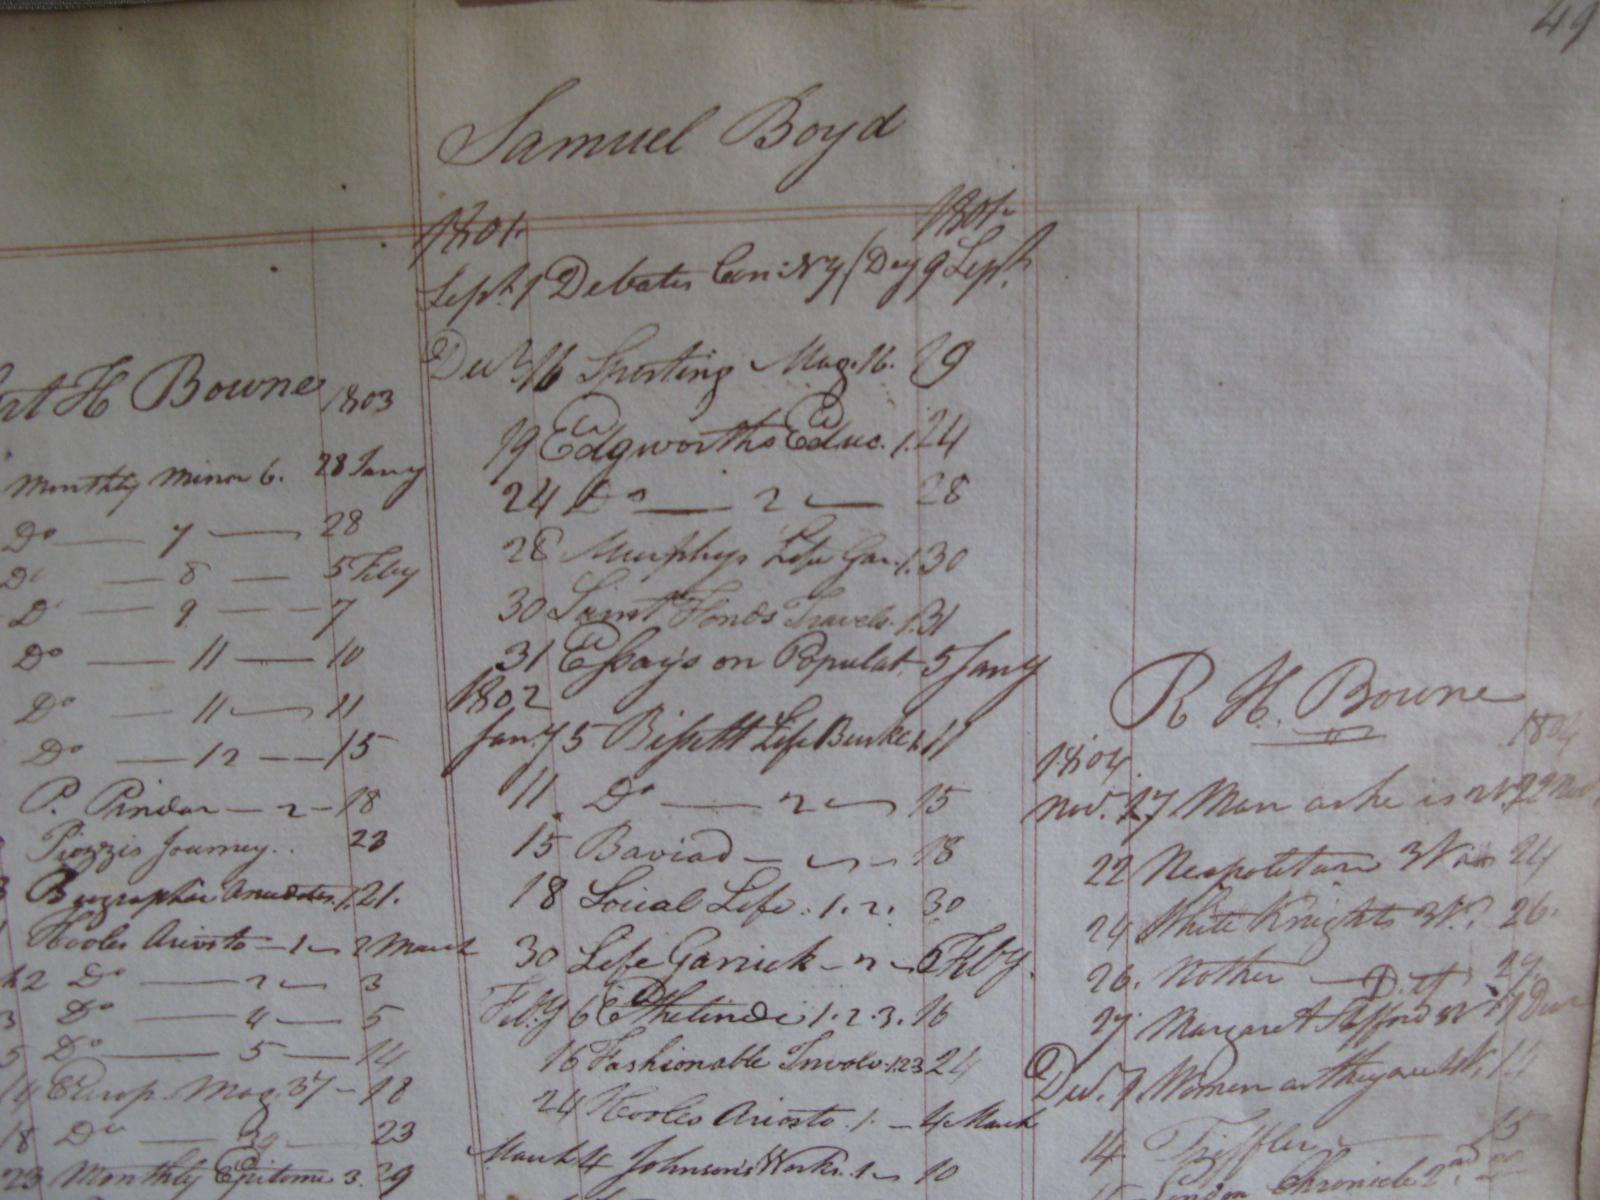 49
Samuel Boyd
1801. 1801.
Sept. 1 Debates Con: NY (Day 9 Sept.
Decr. 16 Sporting Mag. 16. 19
19 Edgworths Educ. 1. 24
24 Do — 2 — 28
28 Murphys Life Gar. 1. 30
30 Saint Fonds Travels. 1. 31
31 Essays on Populat. 5 Jany
1802
Jany 5 Bissett Life Burke 1. 11
11 Do — 2 — 15
15 Baviad — 18
18 Social Life. 1. 2. 30
30 Life Garrick — 2 — 6 Feby.
Feby 6 Ethelinde 1. 2. 3. 16
16 Fashionable Involv. 123 24
24 Hooles Ariosto. 1. — 4 March
March 4 Johnson's Works. 1 — 10
H Bowne 1803
Monthly Mirror 6. 28 Jany
Do — 7 — 28
Do — 8 — 5 Feby
Do — 9 — 7
Do — 11 — 10
Do — 11 — 11
Do — 12 — 15
P. Pindar — 2 — 18
Piozzis Journey.. 23
Biographic Anecdotes. 1. 21.
Hooles Ariosto — 1 — 2 March
2 Do — 2 — 3
3 Do — 4 — 5
5 Do — 5 — 14
14 Europ. Mag. 37 — 18
18 Do — 39 — 23
23 Monthly Epitome 3. 29
R H. Bowne
1804. 1804
Nov. 17 Man as he is 22 Nov
22 Neapolitan 3 V. 24
24 White Knights 3 V. 26.
26. Mother — 29.
29 Margaret Stafford 7 Decr
Decr. 7 Women as they are 14
14 Triffler 15
London Chronicle 2nd